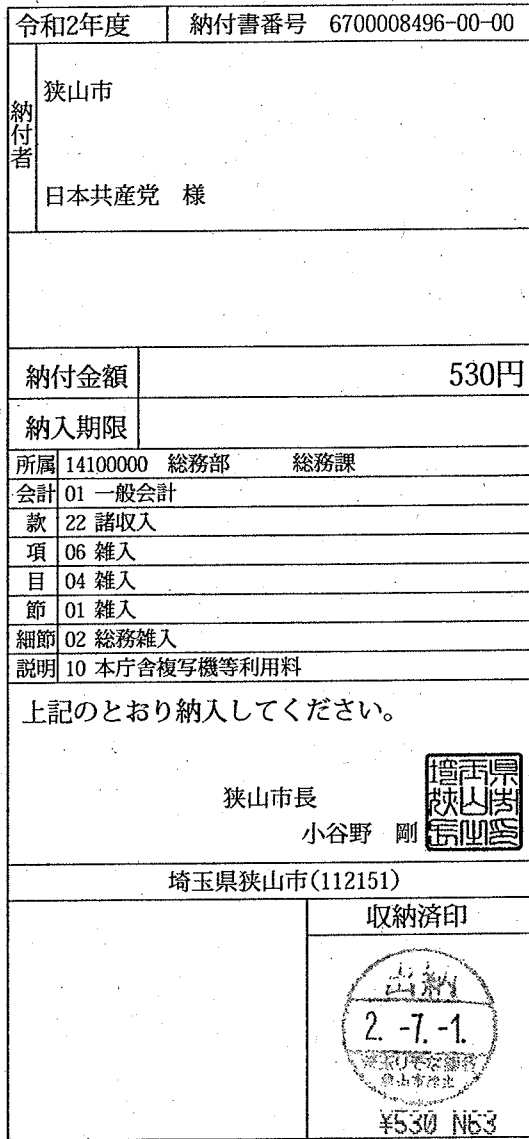 令和2年度 納付書番号 6700008496-00-00
納付者
狭山市
日本共産党 様
納付金額 530円
納入期限
所属 14100000 総務部 総務課
会計 01 一般会計
款 22 諸収入
項 06 雑入
目 04 雑入
節 01 雑入
細節 02 総務雑入
説明 10 本庁舎複写機等利用料
上記のとおり納入してください。
狭山市長
小谷野 剛
埼玉県狭山市(112151)
収納済印
出納
2. -7. -1.
埼玉りそな銀行
¥530 N63